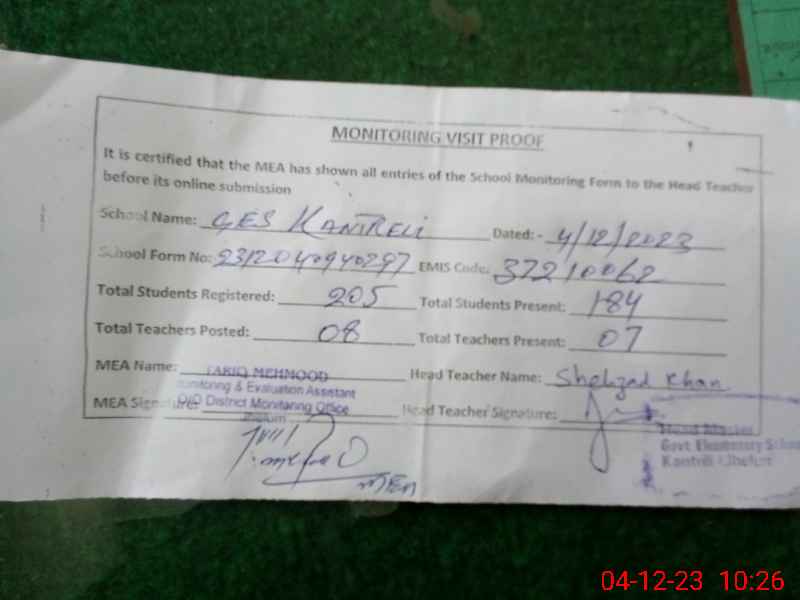 MONITORING VISIT PROOF
It is certified that the MEA has shown all entries of the School Monitoring Form to the Head Teacher
before its online submission
School Name: GES KANTRELI Dated: - 4/12/2023
School Form No: 2312040940297 EMIS Code: 37210062
Total Students Registered: 205 Total Students Present: 184
Total Teachers Posted: 08 Total Teachers Present: 07
MEA Name: TARIQ MEHMOOD Head Teacher Name: Shehzad Khan
Monitoring & Evaluation Assistant
MEA Signature: O/O District Monitoring Office Head Teacher Signature:
Jhelum
Head Master
Govt. Elementary School
Kantrili (Jhelum)
MEA
04-12-23 10:26